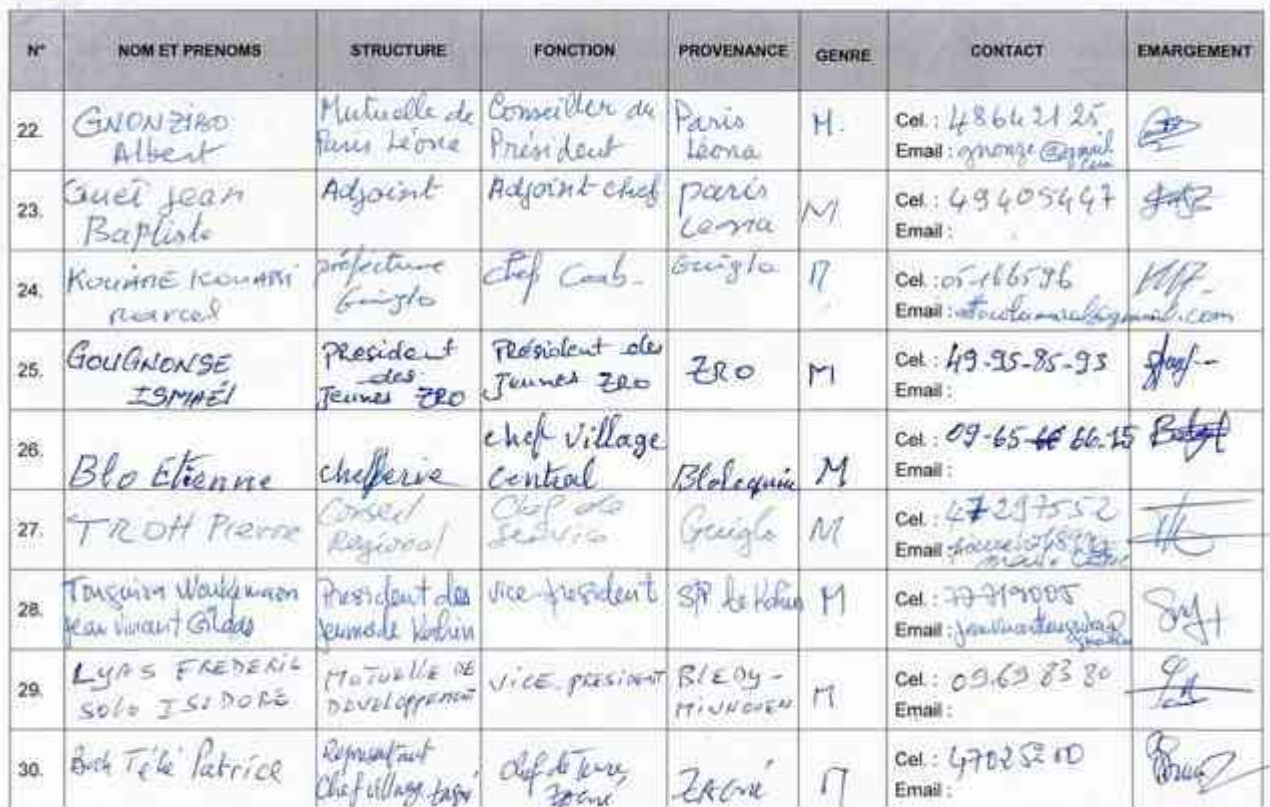 N° NOM ET PRENOMS STRUCTURE FONCTION PROVENANCE GENRE CONTACT EMARGEMENT
22. GNONZIBO Albert Mutuelle de Paris Léona Conseiller du Président Paris Léona M. Cel. : 48642125
Email :
23. Gueï Jean Baptiste Adjoint Adjoint chef Paris Leona M Cel. : 49405447
Email :
24. KOUAME KOUASSI Marcel préfecture Guiglo Chef Cab- Guiglo M Cel. : 05166596
Email :
25. GOUGNONSE ISMAËl President des Jeunes ZRO Président des Jeunes ZRO ZRO M Cel. : 49-95-85-93
Email :
26. Blo Etienne chefferie chef village Central Blolequin M Cel. : 09-65 66.15
Email :
27. TROH Pierre Conseil Régional Chef de Service Guiglo M Cel. : 47297552
Email :
28. Jean Vivant Gildas President des Jeunes de vice-president S/P de M Cel. : 77719005
Email :
29. LYAS FREDERIC SOLO ISIDORE MUTUELLE DE DEVELOPPEMENT VICE-PRESIDENT BLEDY- M Cel. : 09698380
Email :
30. Télé Patrice Représentant Chef village Zagné Chef de Terre Zagné ZAGNé M Cel. : 47025200
Email :